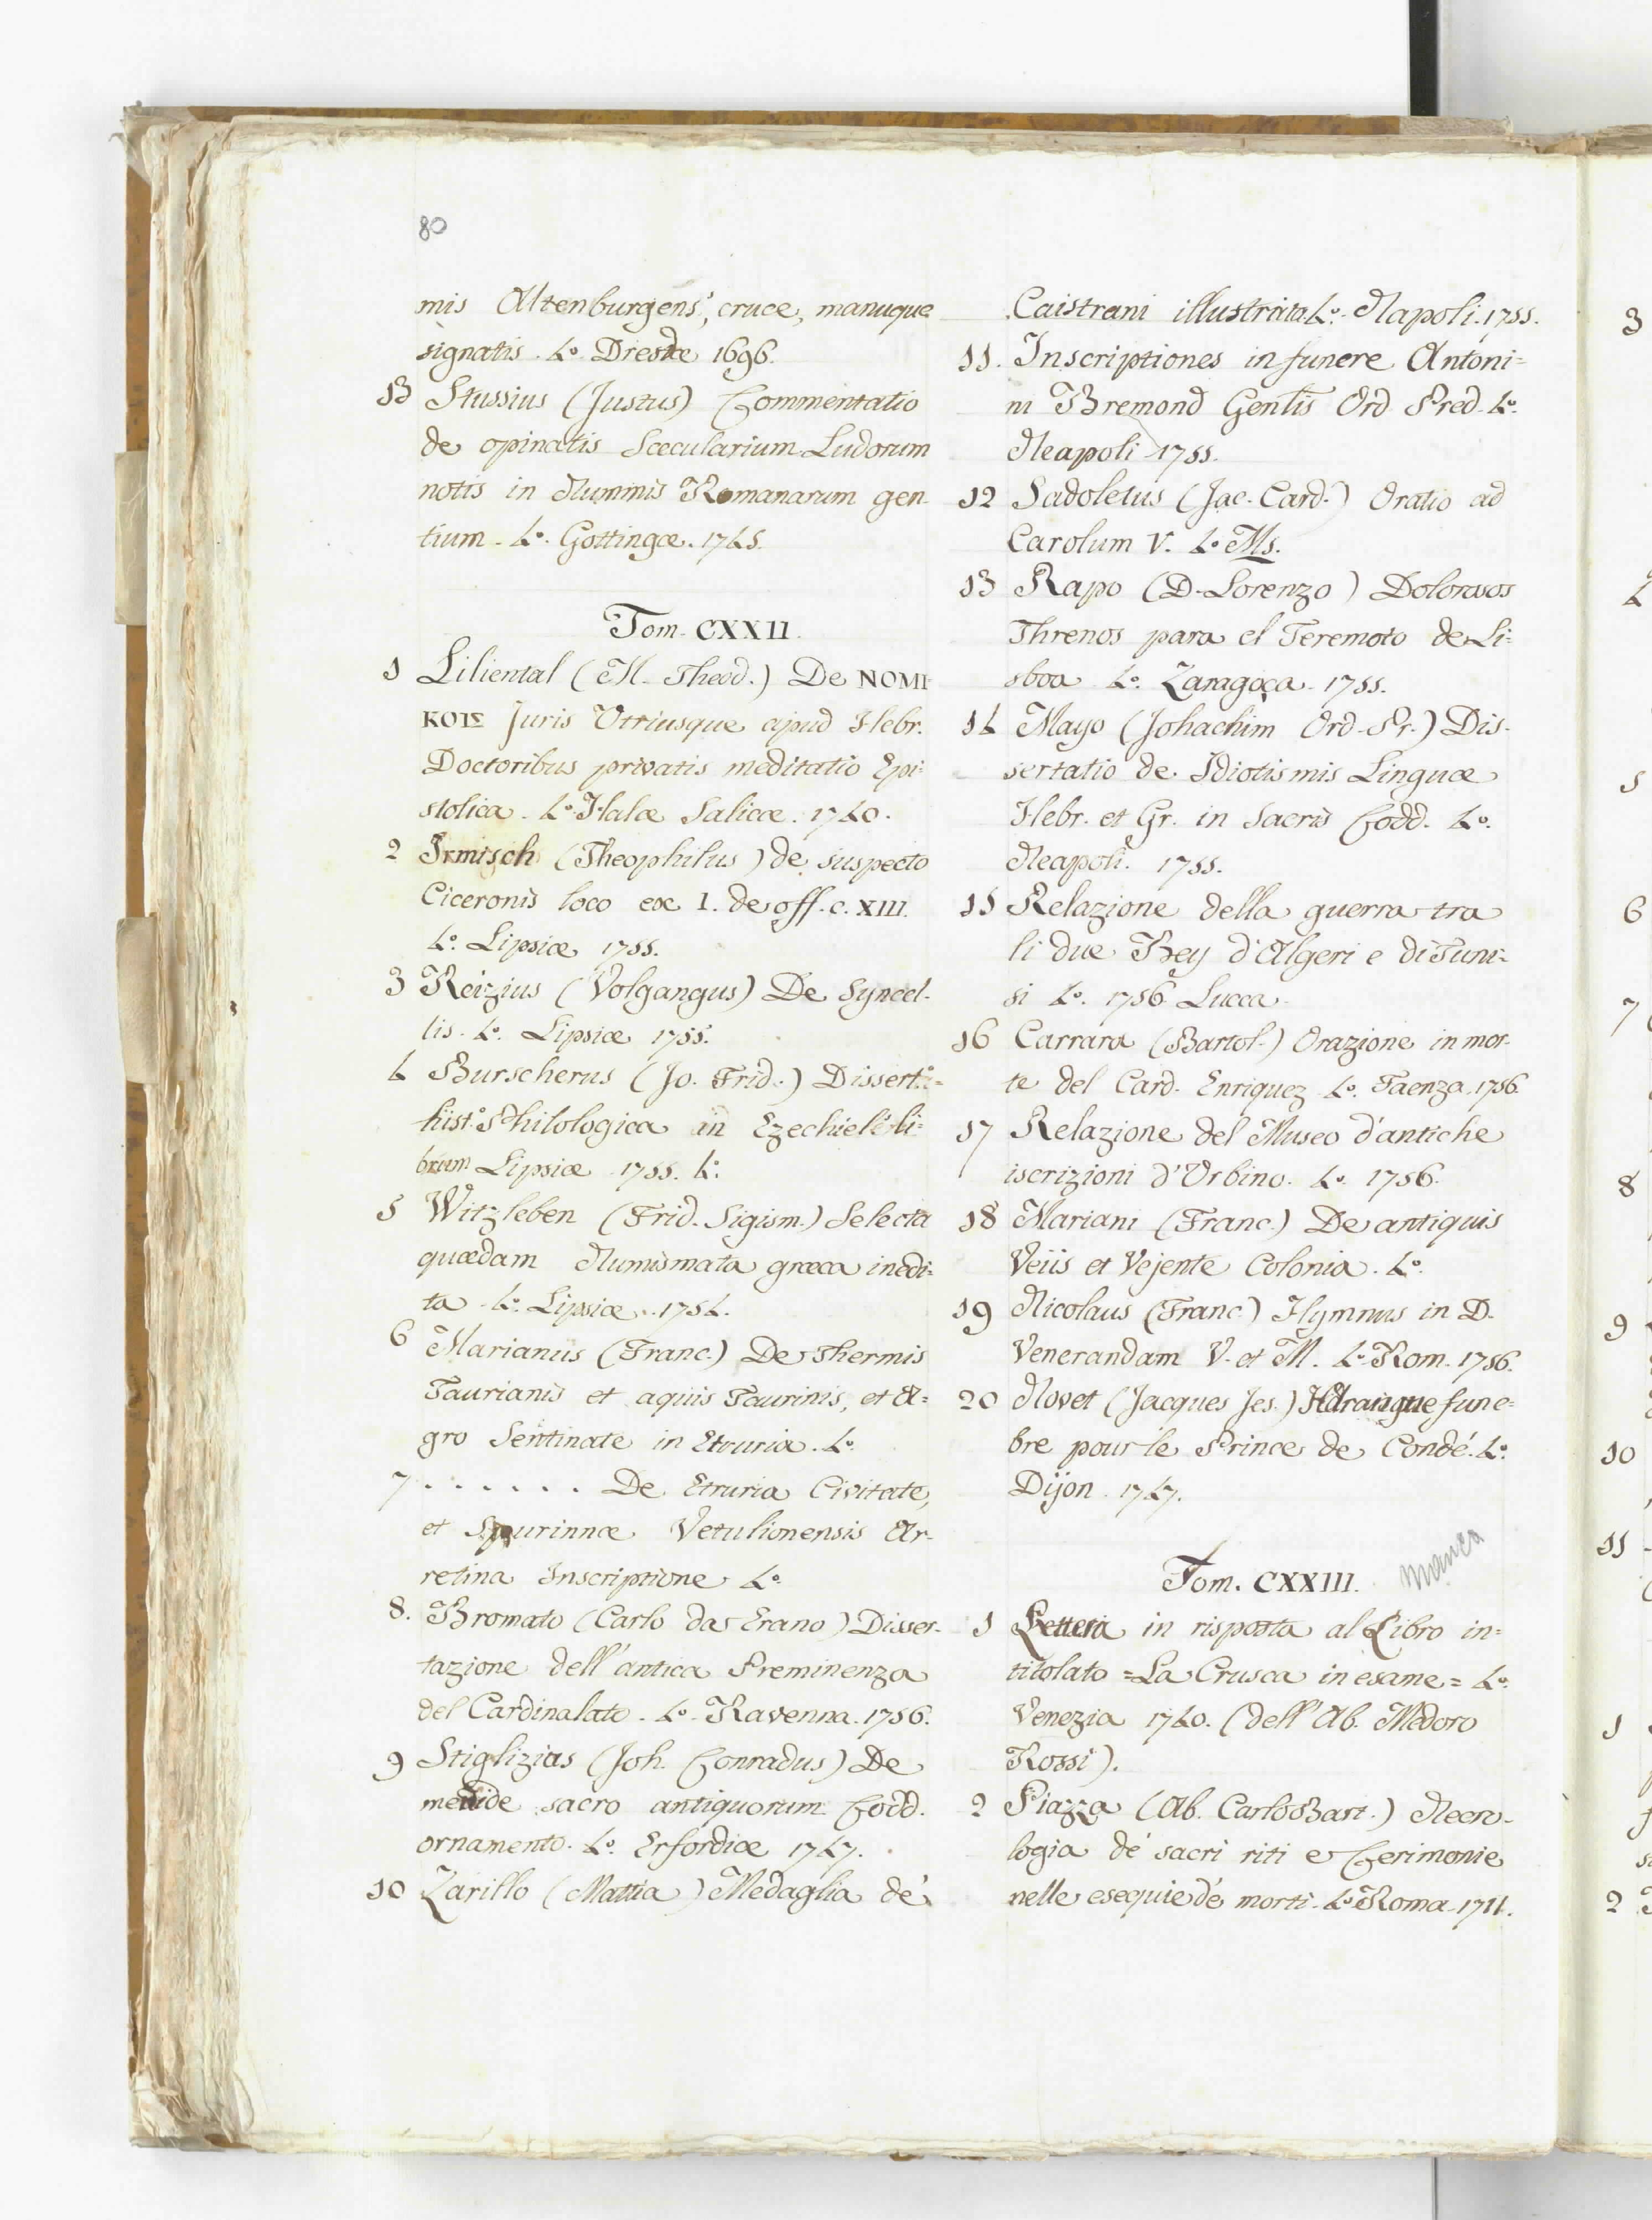 80
mis Altenburgens', cruce, manuque
signatis. 4.o Dresdæ 1696.
13 Stussius (Justus) Commentatio
de opinatis Sæcularium Ludorum
notis in Nummis Romanarum gen-
tium. 4.o Gottingæ. 1745.
Tom. CXXII.
1 Liliental (M. Theod.) De NOMI
ΚΟΙΣ Juris Utriusque apud Hebr.
Doctoribus privatis meditatio Epi=
stolica. 4.o Halæ Salicæ. 1740.
2 Irmisch (Theophilus) de suspecto
Ciceronis loco ex I. de off. c. XIII.
4.o Lipsiæ 1755.
3 Reizius (Volgangus) De Syncel-
lis. 4.o Lipsiæ 1755.
4 Burscherus (Jo. Frid.) Dissert.o
hist.o Philologica in Ezechielé li=
brum Lipsiæ 1755. 4.o
5 Witzleben (Frid. Sigism.) Selecta
quædam Numismata græca inedi=
ta 4.o Lipsiæ. 1754.
6 Marianus (Franc.) De Thermis
Taurianis et aquis Taurinis, et A=
gro Sentinate in Etruria. 4.o
7 . . . . . . De Etruria Civitate,
et Spurinnæ Vetulionensis Ar-
retina Inscriptione 4.o
8. Bromato (Carlo da Erano) Disser-
tazione dell'antica Preminenza
del Cardinalato. 4.o Ravenna. 1756.
9 Stiglizius (Joh. Conradus) De
menide sacro antiquorum Codd.
ornamento. 4.o Erfordiæ 1747.
10 Zarillo (Mattia) Medaglia dé
Caistrani illustrata. 4.o Napoli. 1755.
11. Inscriptiones in funere Antoni=
ni Bremond Genlis Ord Pred. 4.o
Neapoli 1755.
12 Sadoletus (Jac. Card.) Oratio ad
Carolum V. 4.o Ms.
13 Rapo (D. Lorenzo) Dolorosos
Threnos para el Teremoto de Li=
sboa 4.o Zaragoça. 1755.
14 Mayo (Johachim Ord. Pr.) Dis-
sertatio de Idiotismis Linguæ
Hebr. et Gr. in Sacris Codd. 4.o
Neapoli. 1755.
15 Relazione della guerra tra
li due Bey d'Algeri e di Tuni=
si 4.o 1756 Lucca
16 Carrara (Bartol.) Orazione in mor-
te del Card. Enriquez 4.o Faenza. 1756.
17 Relazione del Museo d'antiche
iscrizioni d'Urbino. 4.o 1756.
18 Mariani (Franc.) De antiquis
Veiis et Vejente Colonia. 4.o
19 Nicolaus (Franc.) Hymnus in D.
Venerandam V. et M. 4.o Rom. 1756.
20 Novet (Jacques Jes.) Harangue fune=
bre pour le Prince de Condé. 4.o
Dijon. 1747.
Tom. CXXIII. manca
1 Lettera in risposta al Libro in=
titolato =La Crusca in esame= 4.o
Venezia 1740. (dell'Ab. Medoro
Rossi).
2 Piazza (Ab. Carlo Bart.) Necro-
logia dé sacri riti e Cerimonie
nelle esequie dé morti. 4.o Roma. 1711.
3
4
5
6
7
8
9
10
11
1
2